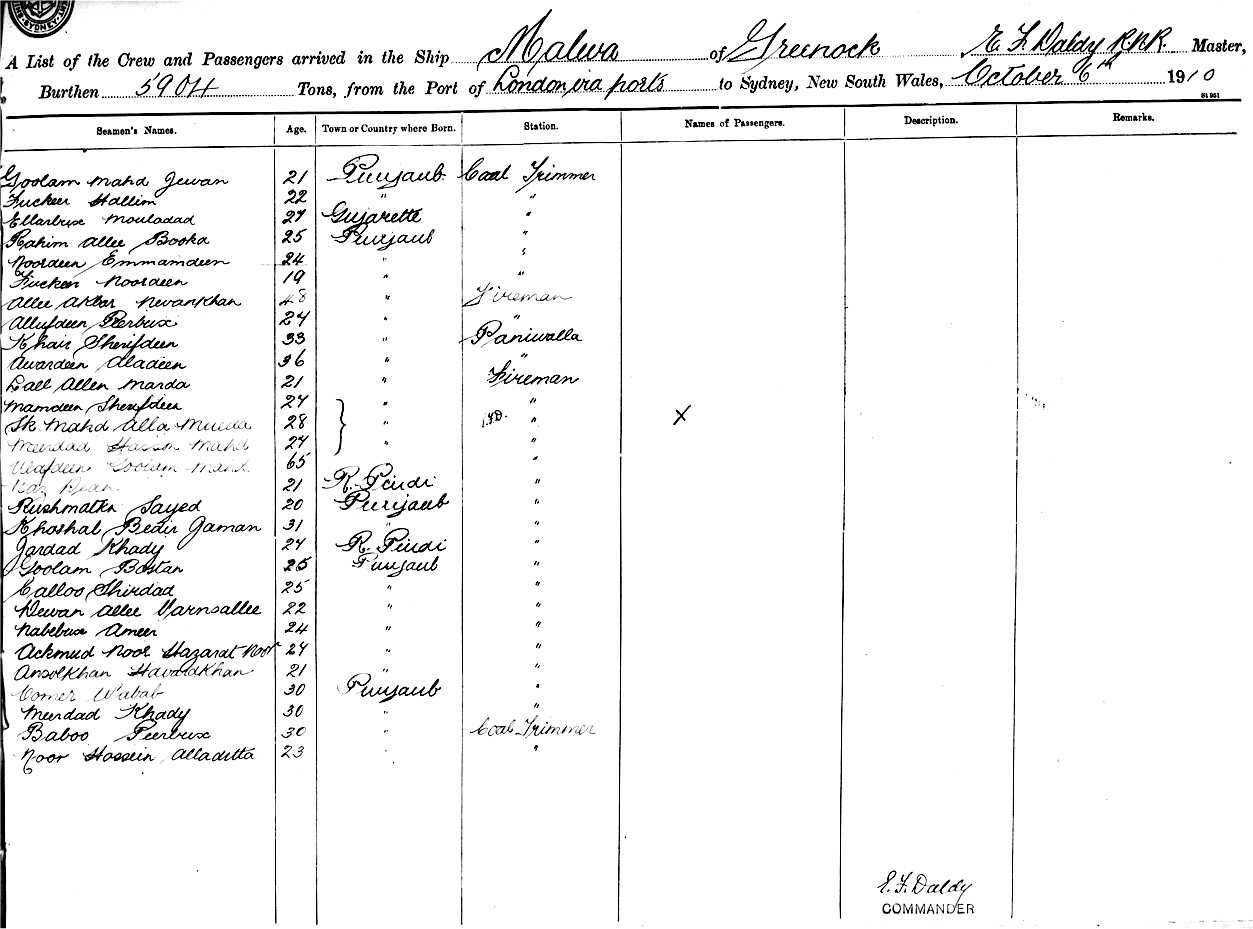 SYDNEY
A List of the Crew and Passengers arrived in the Ship Malwa of Greenock E F Daldy R.N.R. Master,
Burthen 5904 Tons, from the Port of London via ports to Sydney, New South Wales, October 6th 1910
81951
Seamen's Names. Age. Town or Country where Born. Station. Names of Passengers. Description. Remarks.
Goolam Mahd Jewan 21 Punjaub. Coal Trimmer
Fuckeer Hallim 22 " "
Ellarbux Mouladad 27 Gujarette "
Rahim Allee Booka 25 Punjaub "
Noordeen Emmamdeen 24 " "
Fuckeer Noordeen 19 " "
Allee Akbar Nevankhan 48 " Fireman
Allufdeen Peerbux 24 " "
Khair Sherifdeen 33 " Paniwalla
Awardeen Aladeen 36 " "
Lall Allen Marda 21 " Fireman
Mamdeen Sherifdeen 24 " "
Sk Mahd Alla Mulda 28 " " X
Meerdad Hassan Mahd 24 " "
Ulafdeen Goolam Mahd 65 "
Dean 21 R. Pindi "
Rushmatka Sayed 20 Punjaub "
Khoshal Bedir Jaman 31 " "
Jardad Khady 24 R. Pindi "
Goolam Bostan 25 Punjaub "
Calloo Shirdad 25 " "
Dewan Allee Varnsallee 22 " "
Nabebux Ameer 24 " "
Ackmud Noor Hazarat Noor 24 " "
Ansolkhan Havardkhan 21 " "
Comer Wabab 30 Punjaub "
Meerdad Khady 30 " "
Baboo Peerbux 30 " Coal Trimmer
Noor Hossein Alladitta 23 " "
E. F. Daldy
COMMANDER